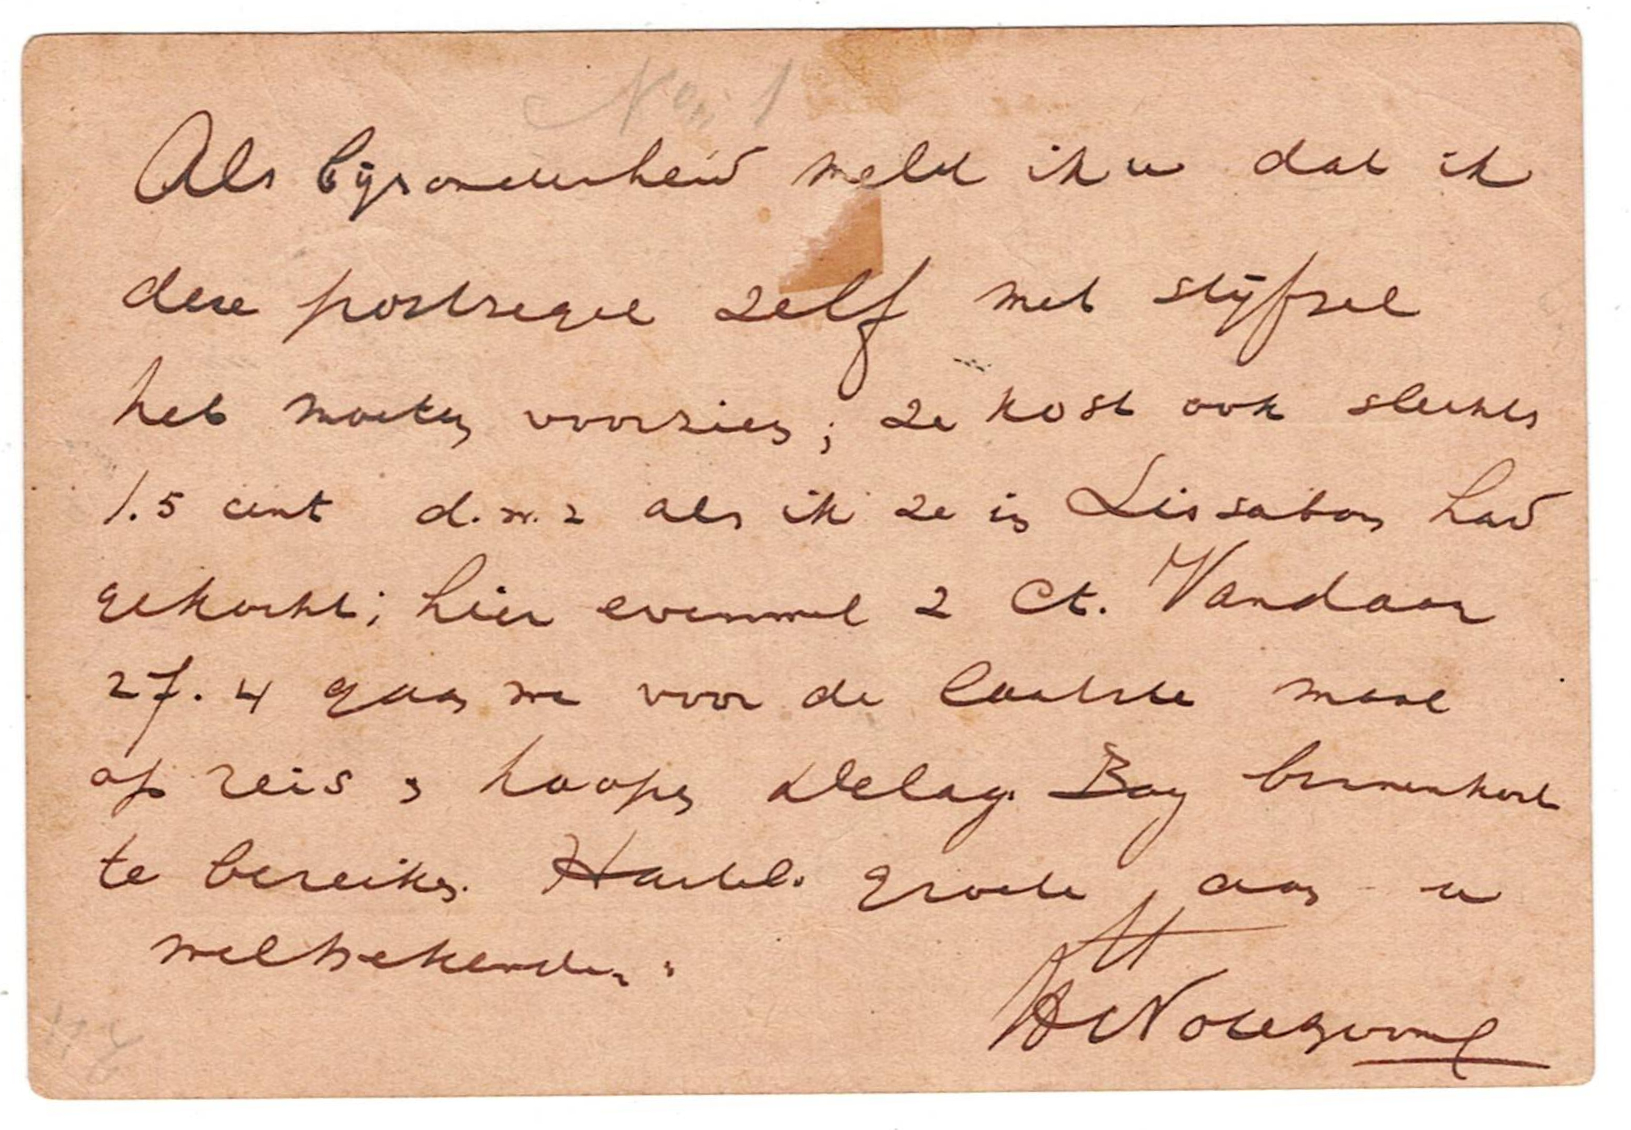 Als bijzonderheid meld ik u dat ik
deze postzegel zelf met stijfsel
heb moeten voorzien; ze kost ook slechts
1.5 cent d.w.z als ik ze in Lissabon had
gekocht; hier evenwel 2 ct. Vandaar
27.4 gaan we voor de laatste maal
op reis & hoopen Delag. Bay binnenkort
te bereiken. Hartel. groete, aan u
welbekende: